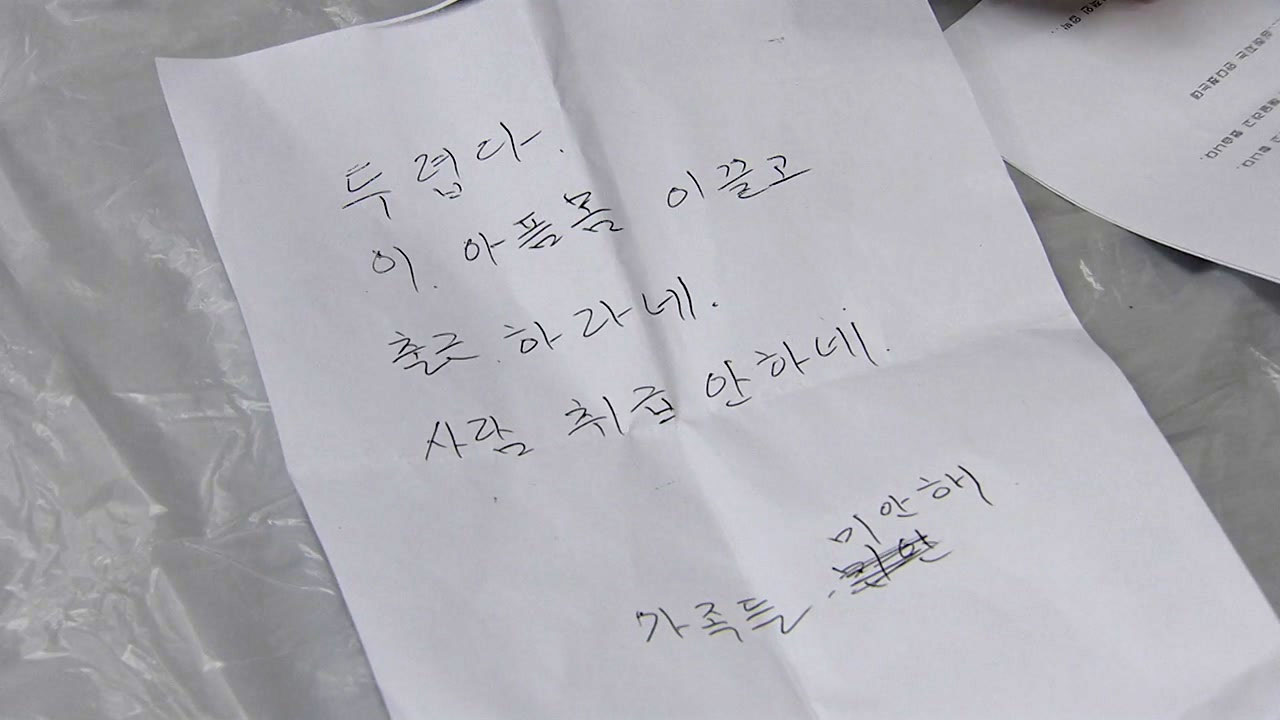 두렵다.
이 아픔몸 이끌고
출근 하라네.
사람 취급 안하네.
미안해
가족들.